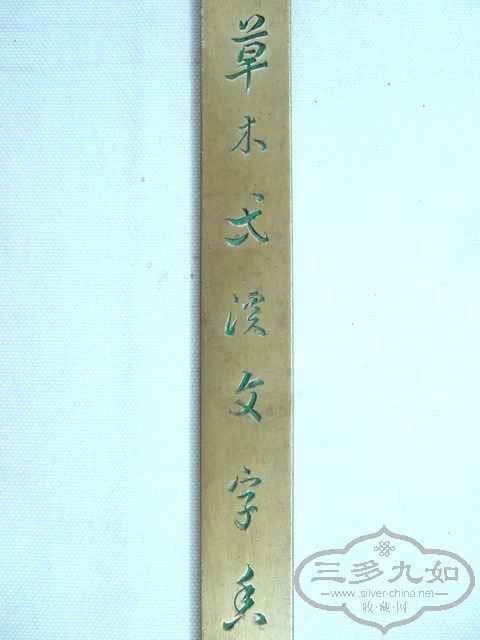 草木
文字香
三多九如
www.silver-china.net
收·藏·网